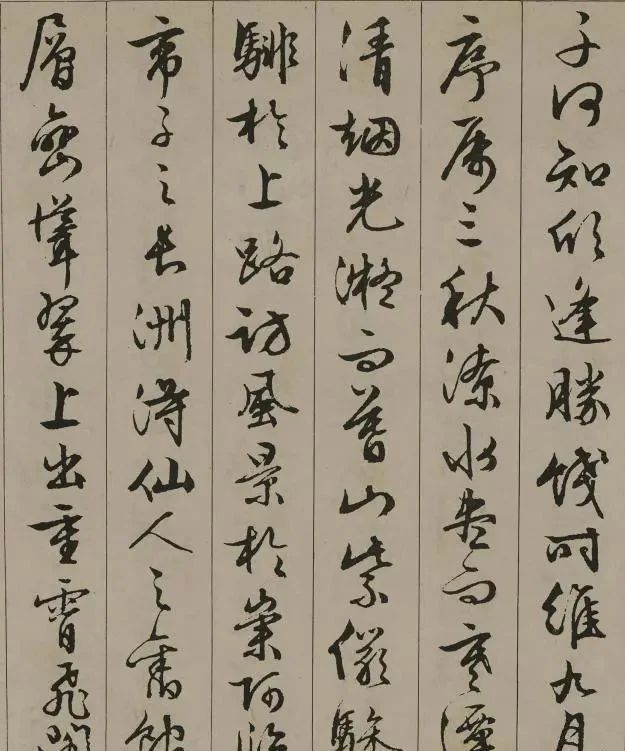 子何知躬逢勝餞時維九月
序属三秋潦水盡而寒潭
清烟光凝而暮山紫儼驂
騑於上路訪風景於崇阿臨
帝子之長洲得仙人之舊館
層巒聳翠上出重霄飛閣